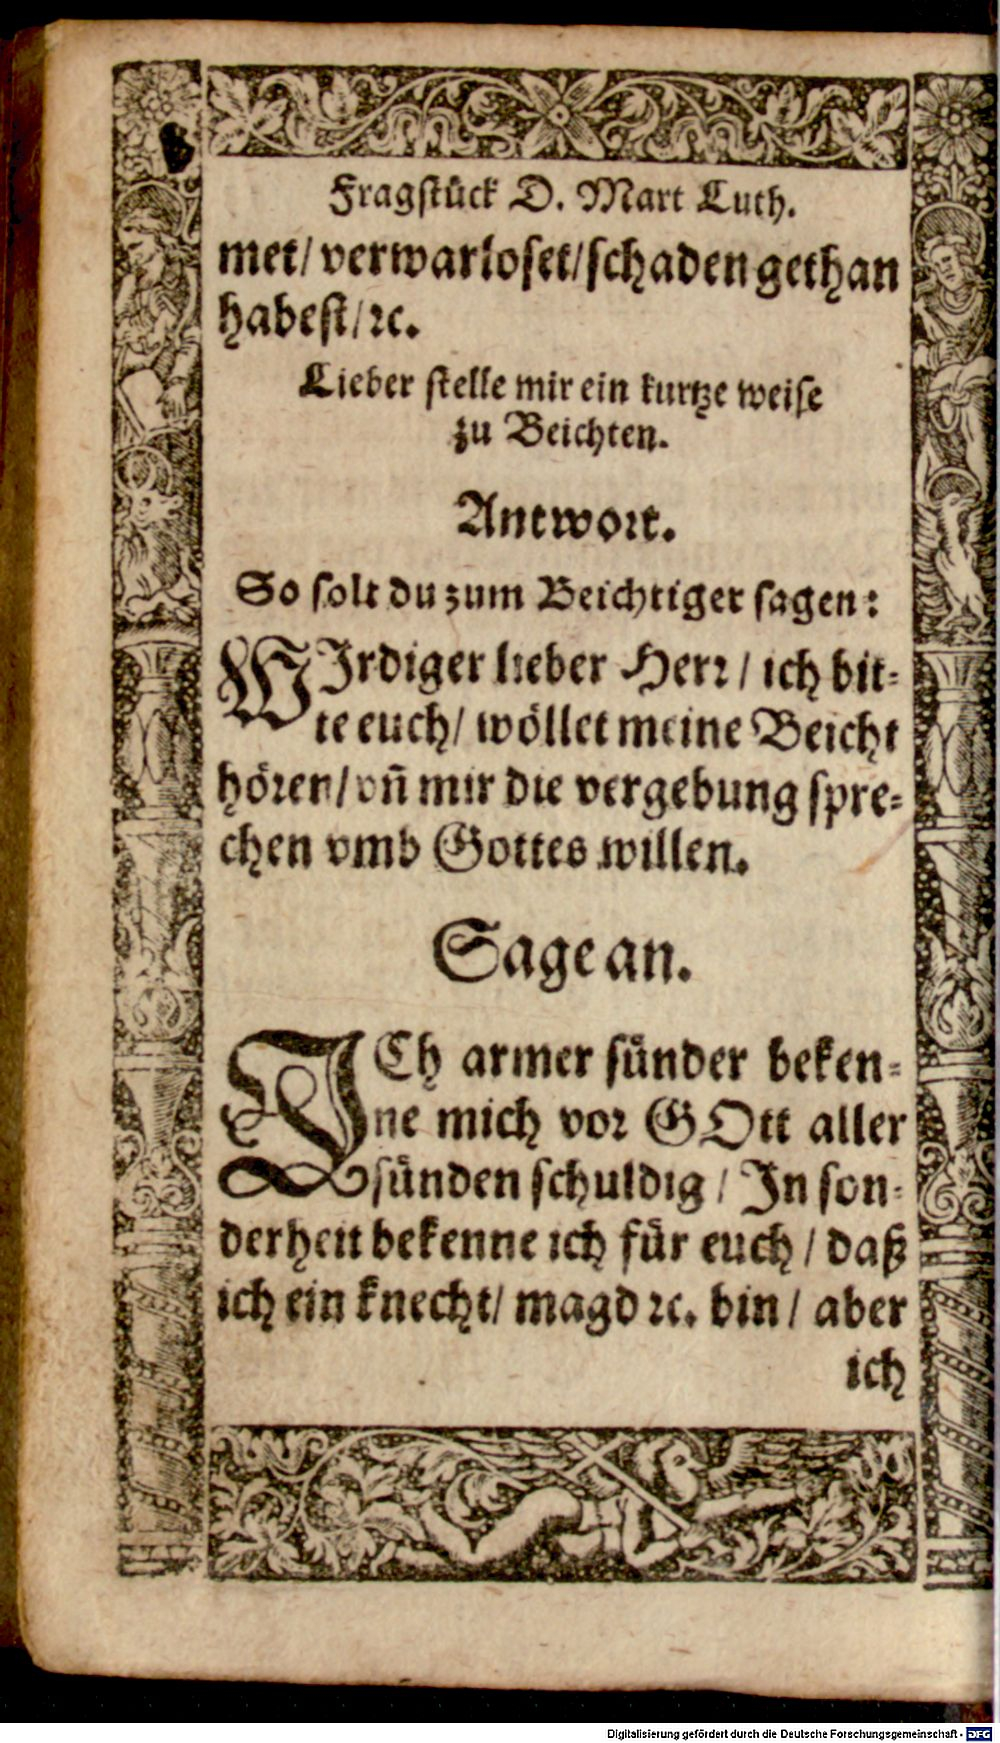 Fragstück D. Mart Luth.
met/ verwarloset/ schaden gethan
habest/ ꝛc.
Lieber stelle mir ein kurtze weise
zu Beichten.
Antwort.
So solt du zum Beichtiger sagen:
WIrdiger lieber Herr/ ich bit-
te euch/ wöllet meine Beicht
hören/ vñ mir die vergebung spre-
chen vmb Gottes willen.
Sage an.
ICh armer sünder beken-
ne mich vor GOtt aller
sünden schuldig/ In son-
derheit bekenne ich für euch/ daß
ich ein knecht/ magd ꝛc. bin/ aber
ich
Digitalisierung gefördert durch die Deutsche Forschungsgemeinschaft - DFG